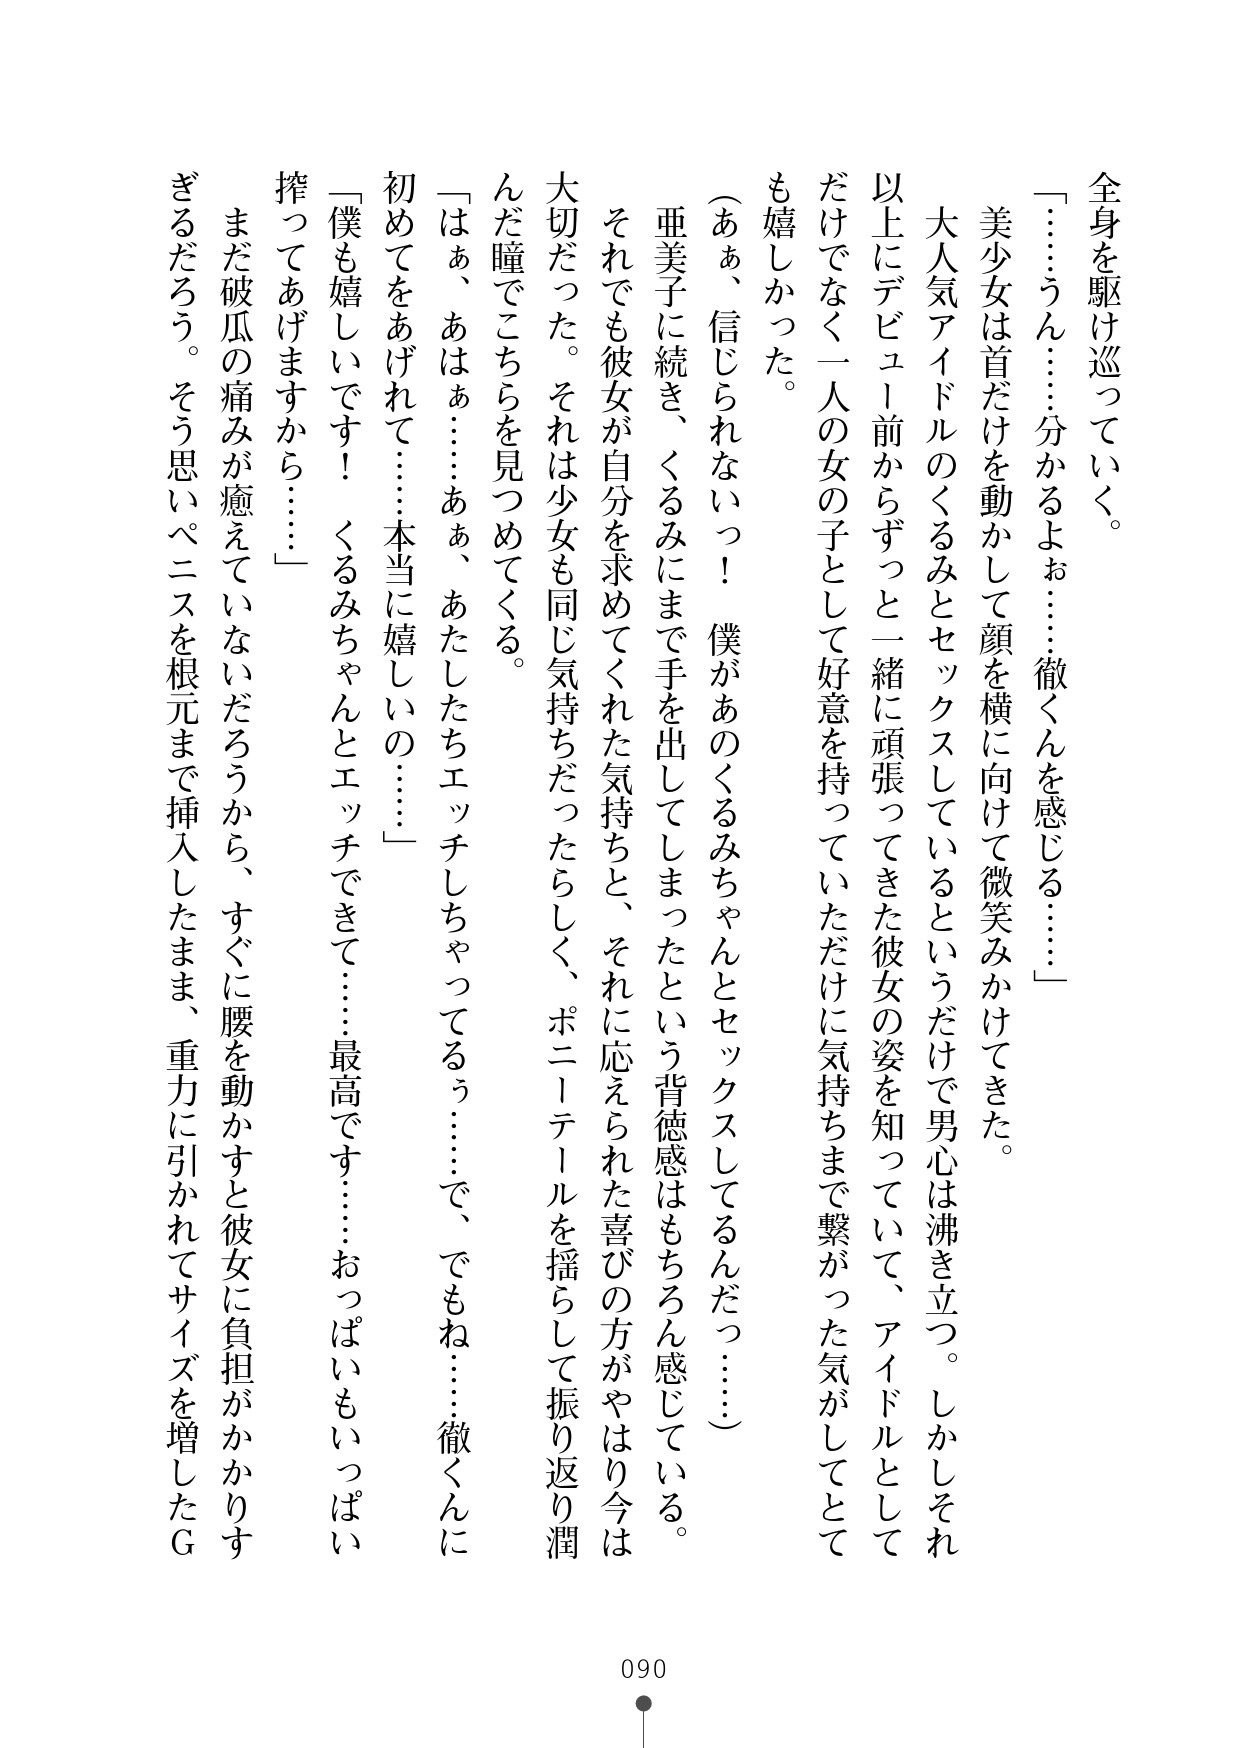 全身を駆け巡っていく。
「……うん……分かるよぉ……徹くんを感じる……」
　美少女は首だけを動かして顔を横に向けて微笑みかけてきた。
　大人気アイドルのくるみとセックスしているというだけで男心は沸き立つ。しかしそれ
以上にデビュー前からずっと一緒に頑張ってきた彼女の姿を知っていて、アイドルとして
だけでなく一人の女の子として好意を持っていただけに気持ちまで繋がった気がしてとて
も嬉しかった。
（あぁ、信じられないっ！　僕があのくるみちゃんとセックスしてるんだっ……）
　亜美子に続き、くるみにまで手を出してしまったという背徳感はもちろん感じている。
　それでも彼女が自分を求めてくれた気持ちと、それに応えられた喜びの方がやはり今は
大切だった。それは少女も同じ気持ちだったらしく、ポニーテールを揺らして振り返り潤
んだ瞳でこちらを見つめてくる。
「はぁ、あはぁ……あぁ、あたしたちエッチしちゃってるぅ……で、でもね……徹くんに
初めてをあげれて……本当に嬉しいの……」
「僕も嬉しいです！　くるみちゃんとエッチできて……最高です……おっぱいもいっぱい
搾ってあげますから……」
　まだ破瓜の痛みが癒えていないだろうから、すぐに腰を動かすと彼女に負担がかかりす
ぎるだろう。そう思いペニスを根元まで挿入したまま、重力に引かれてサイズを増したＧ
090